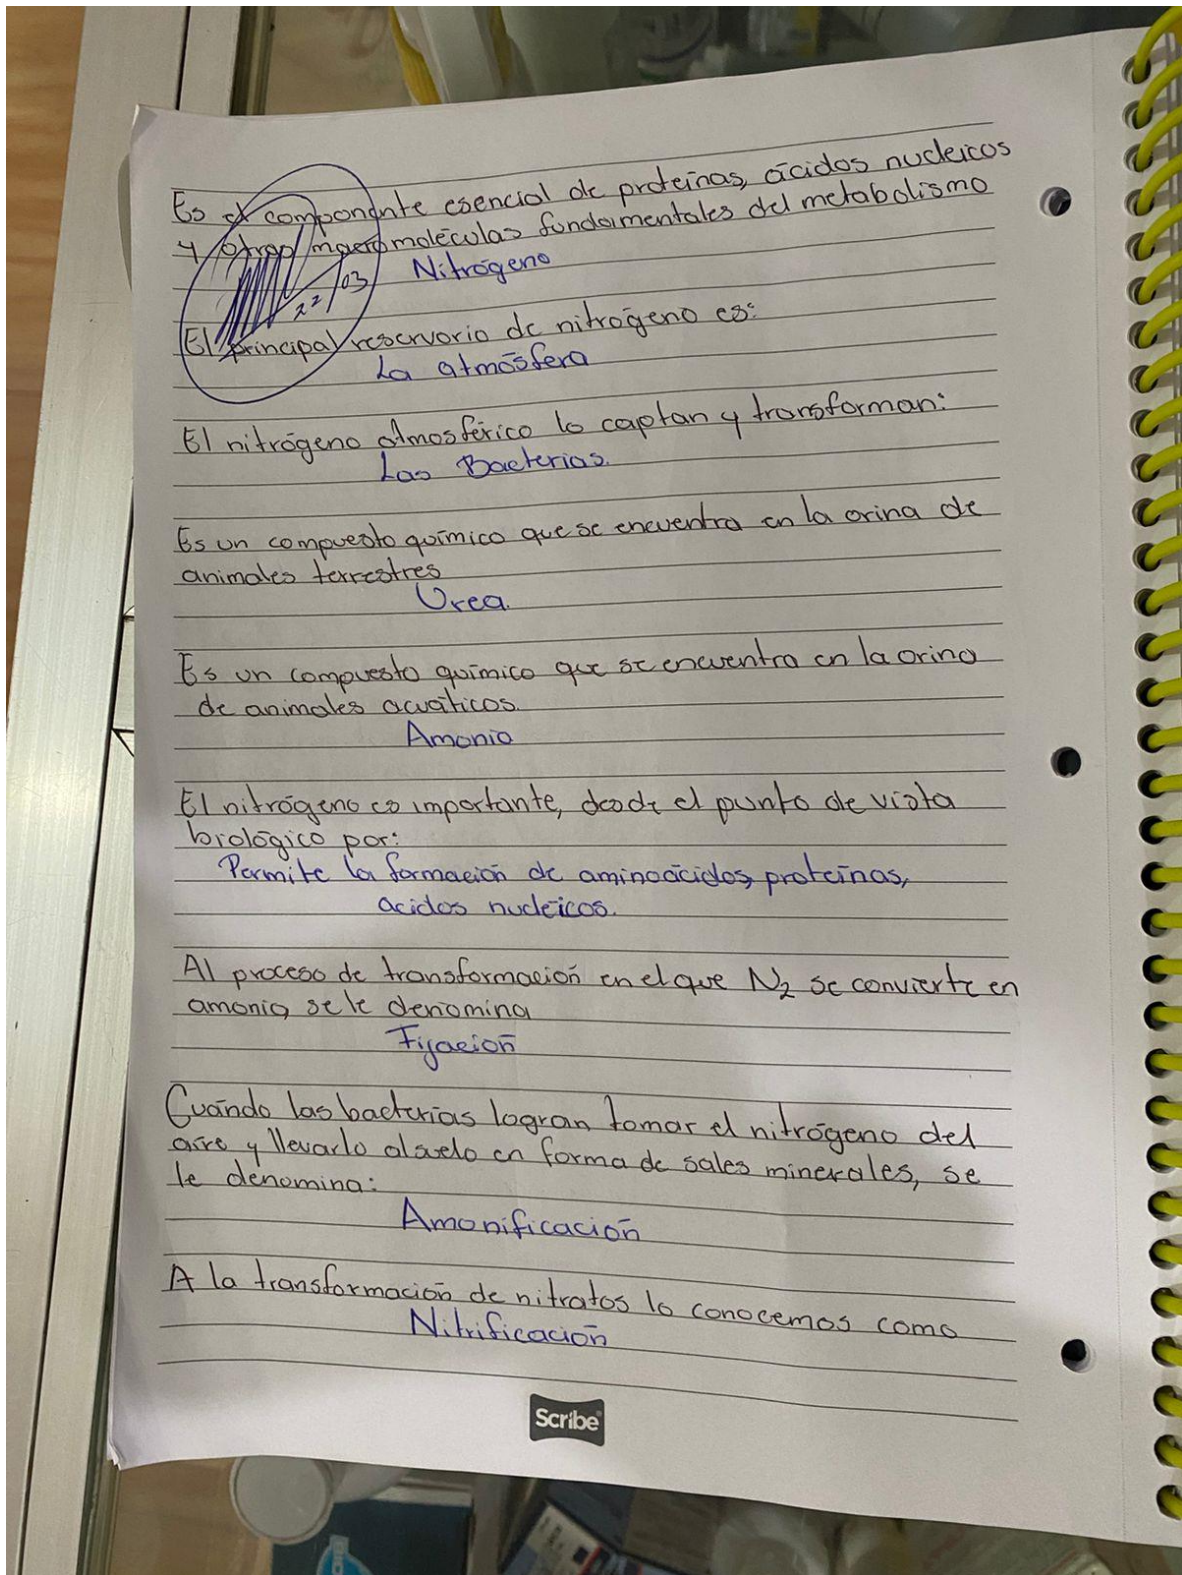 Es el componente esencial de proteínas, ácidos nucleicos
y otras macromoléculas fundamentales del metabolismo
Nitrógeno
22/03
El principal reservorio de nitrógeno es:
La atmósfera
El nitrógeno atmosférico lo captan y transforman:
Las Bacterias.
Es un compuesto químico que se encuentra en la orina de
animales terrestres
Urea.
Es un compuesto químico que se encuentra en la orina
de animales acuáticos.
Amonio
El nitrógeno es importante, desde el punto de vista
biológico por:
Permite la formación de aminoácidos, proteínas,
acidos nucléicos.
Al proceso de transformación en el que N₂ se convierte en
amonio, se le denomina
Fijación
Cuándo las bacterias logran tomar el nitrógeno del
aire y llevarlo al suelo en forma de sales minerales, se
le denomina:
Amonificación
A la transformación de nitratos lo conocemos como
Nitrificación
Scribe